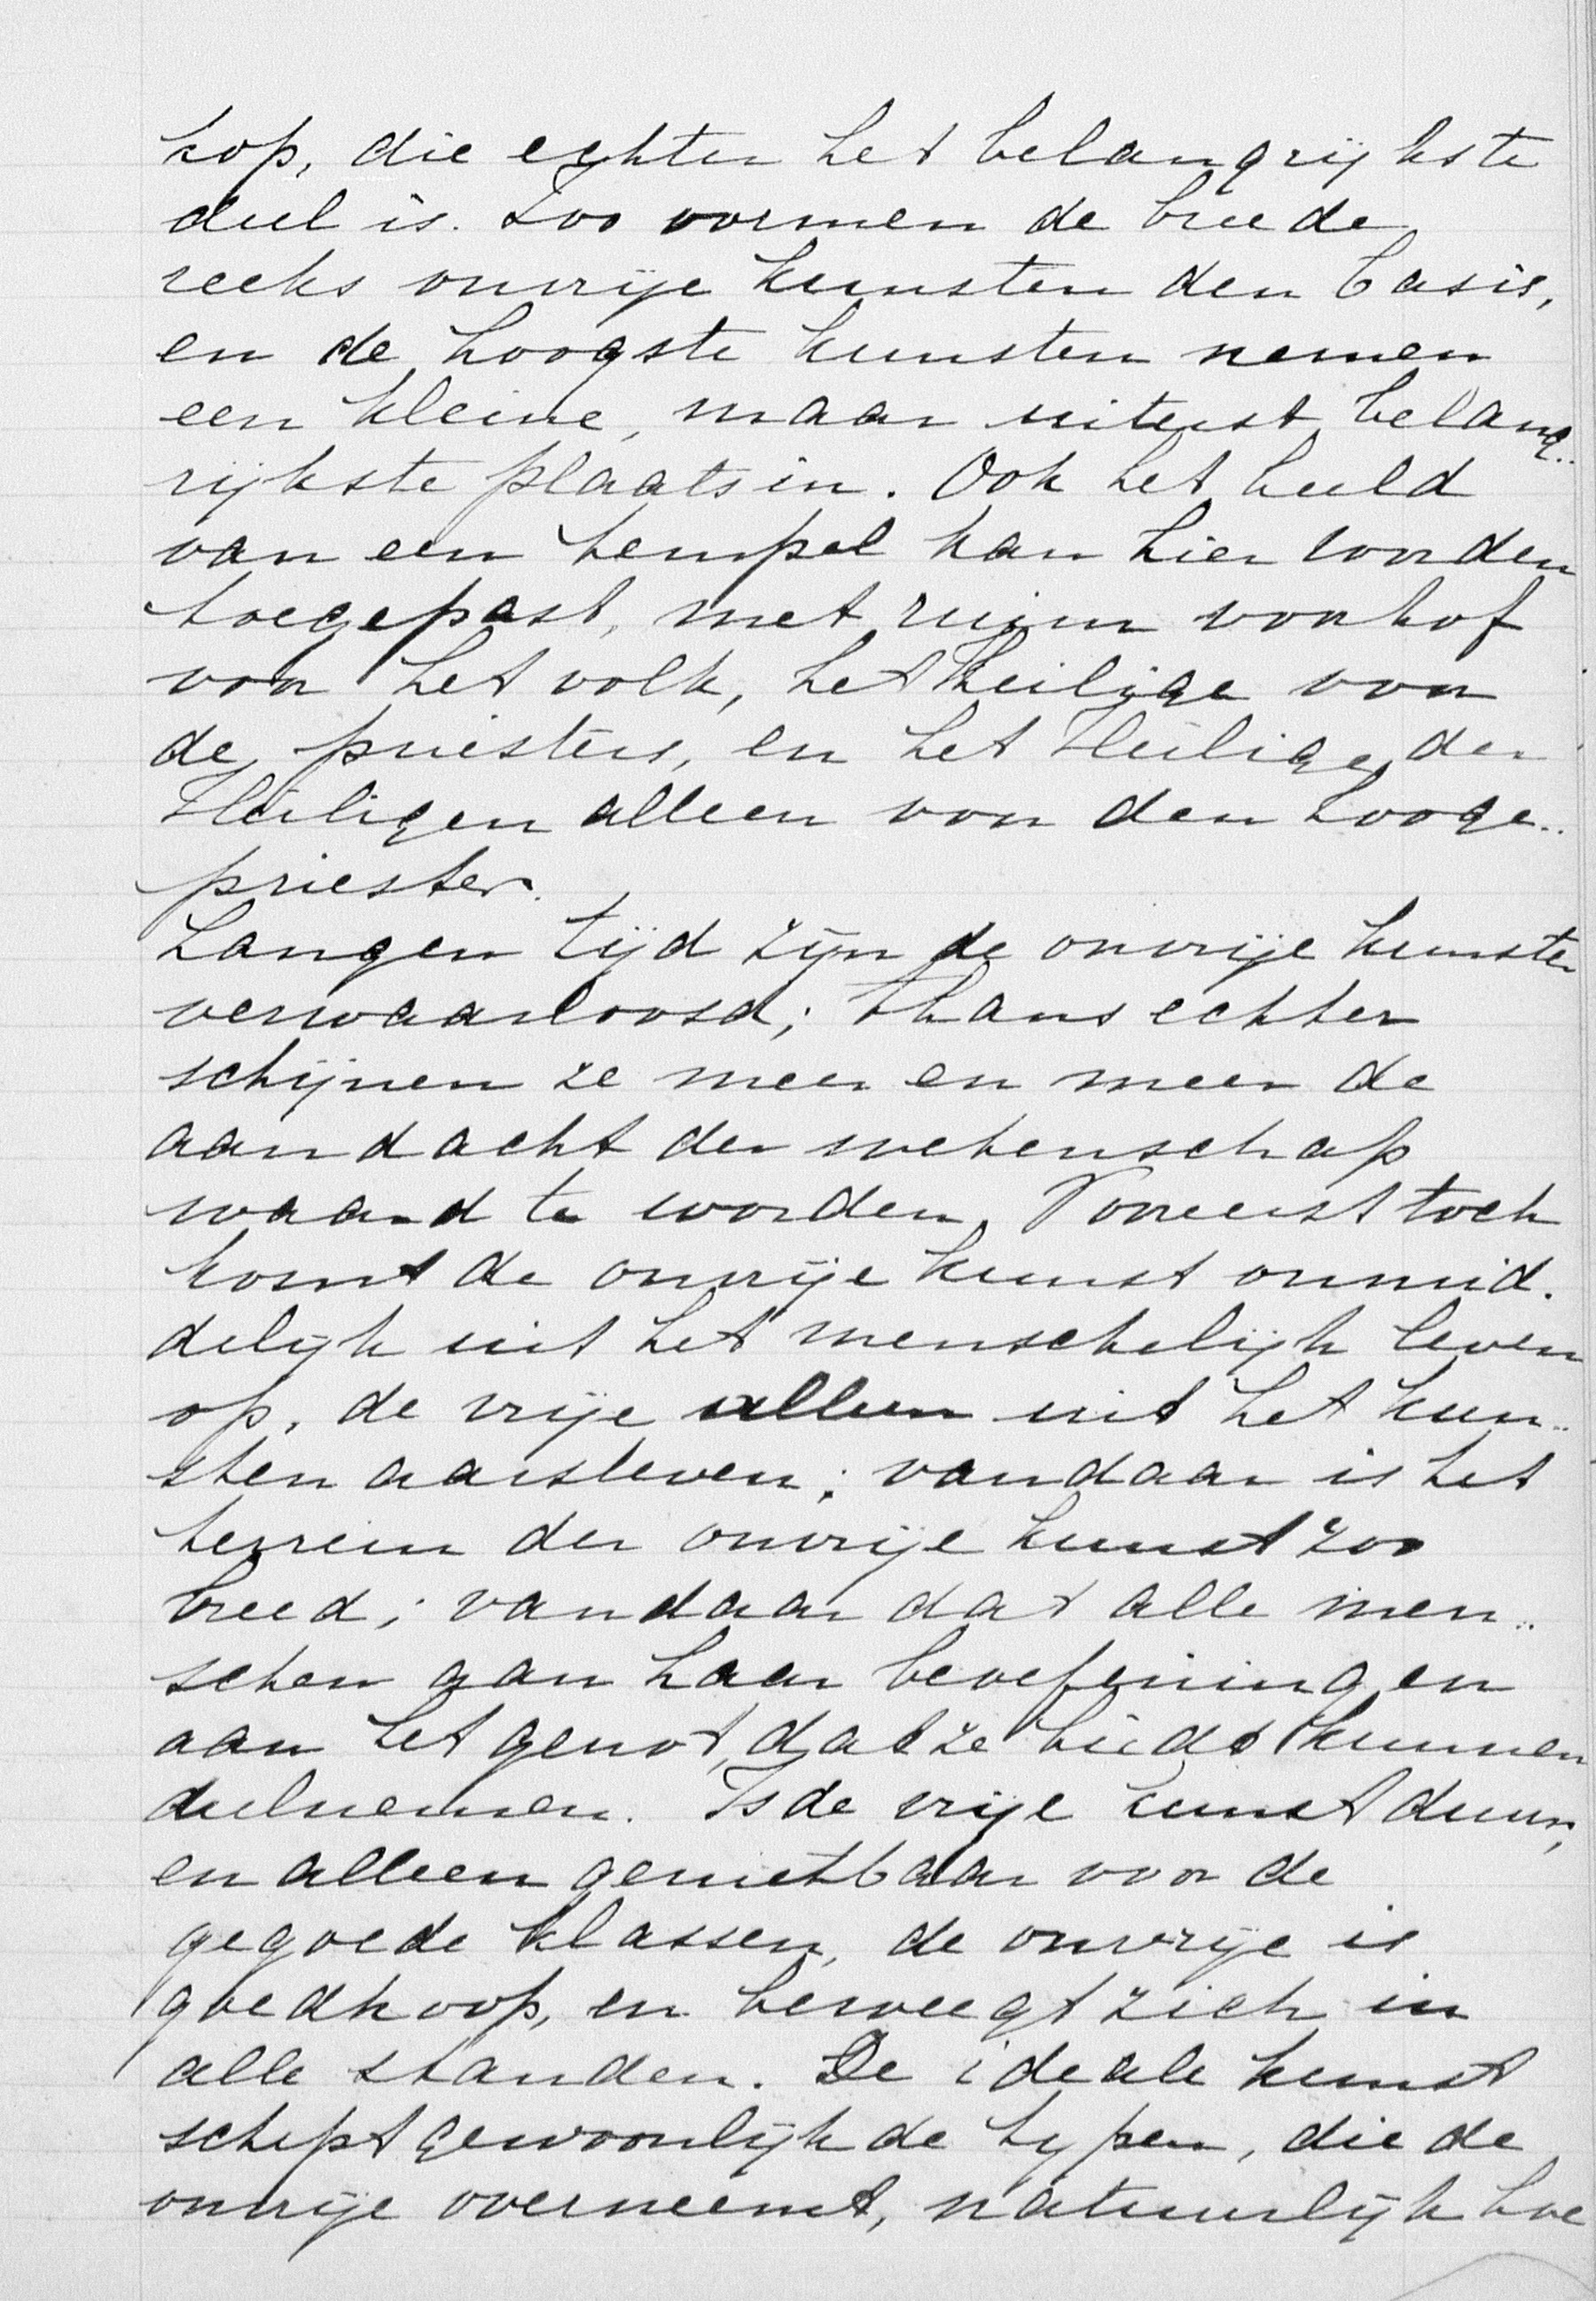 top, die echter het belangrijkste
deel is. Zoo vormen de breede
reeks onvrije kunsten den basis,
en de hoogste kunsten nemen
een kleine, maar uiterst belang..
rijkste plaats in. Ook het beeld
van een tempel kan hier worden
toegepast, met ruim voorhof
voor het volk, het heilige voor
de priesters, en het Heilige der
Heiligen alleen voor den hooge..
priester.
Langen tijd zijn de onvrije kunsten
verwaarloosd; thans echter
schijnen ze meer en meer de
aandacht der wetenschap
waard te worden. Vooreerst toch
komt de onvrije kunst onmid.
delijk uit het menschelijk leven
op, de vrije alleen uit het kun..
stenaarsleven; vandaar is het
terrein der onvrije kunst zoo
breed; vandaar dat alle men..
schen aan haar beoefening en
aan het genot, dat ze biedt kunnen
deelnemen. Is de vrije kunst duur,
en alleen genietbaar voor de
gegoede klassen, de onvrije is
goedkoop, en beweegt zich in
alle standen. De ideale kunst
schept gewoonlijk de typen, die de
onvrije overneemt, natuurlijk hoe